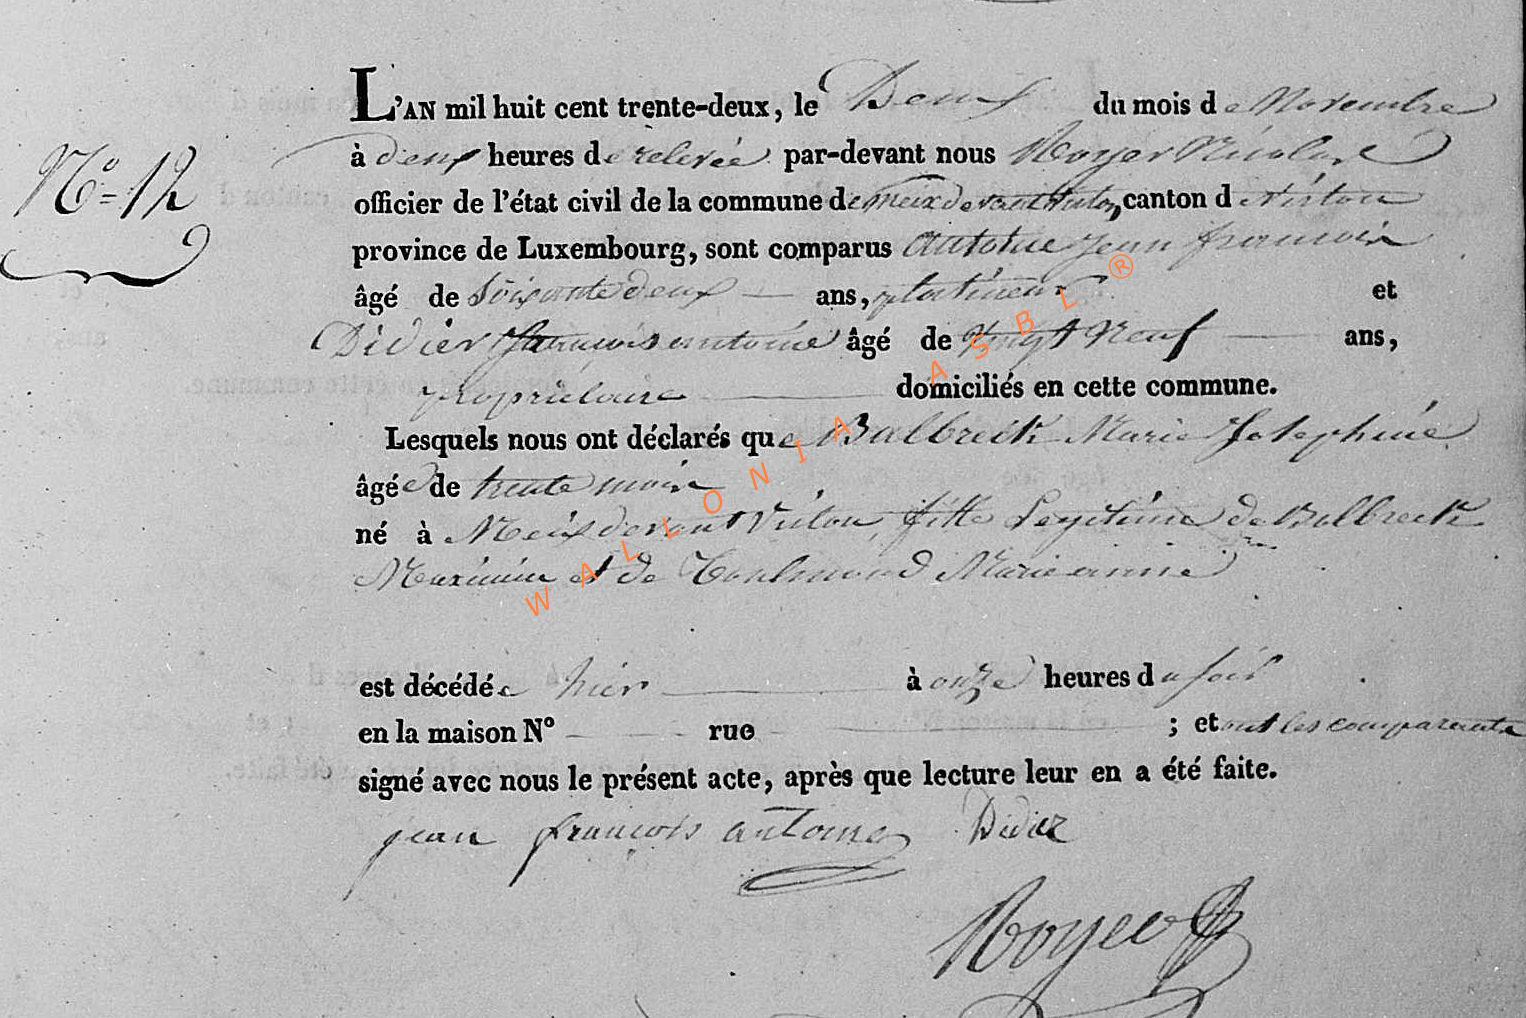 L'AN mil huit cent trente-deux, le Deux du mois de Novembre
N° = 12
à deux heures de relevée par-devant nous Royer Nicolas
officier de l'état civil de la commune de Meix devant Virton, canton de Virton
province de Luxembourg, sont comparus Antoine Jean françois
âgé de Soixante deux ans, et
Didier françois antoine âgé de Vingt Neuf ans,
propriétaire domiciliés en cette commune.
Lesquels nous ont déclarés que Balbreck Marie Josephine
âgée de trente mois
né à Meix devant Virton, fille Legitime de Balbreck
Maximin et de Marie anne
est décédée hier à onze heures du soir
en la maison N° rue ; et ont les comparants
signé avec nous le présent acte, après que lecture leur en a été faite.
jean françois antoine Didier
Royer
WALLONIA ASBL ®